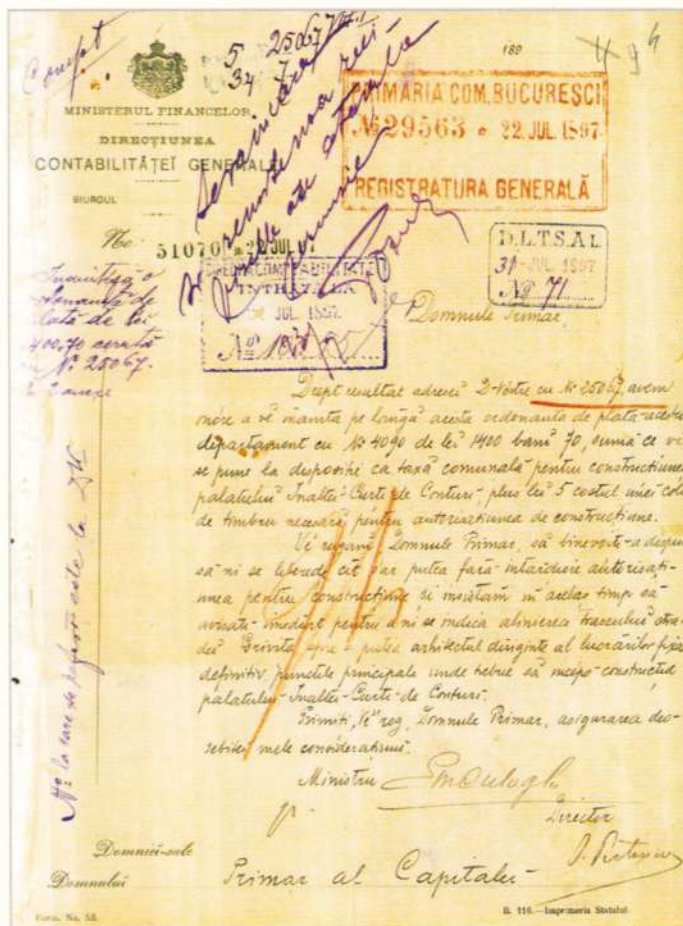 Compt
5 25067
34 7
189
494
MINISTERUL FINANCELOR
DIRECŢIUNEA
CONTABILITĂŢEI GENERALE
BIUROUL
PRIMĂRIA COM. BUCURESCI
№ 29563 * 22. JUL. 1897
REGISTRATURA GENERALĂ
No. 51070 * 22 JUL 97
D.L.T.S.A.L.
31 JUL 1897
No 71
INTRAREA LA
JUL. 1897.
No
o
de
plată de lei
1400,70 cerută
cu No 25067.
Domnule Primar
Drept resultat adresei D-Vóstre cu No 25067, avem
onóre a vĕ înainta pe lângă acesta ordonanta de plata acestui
departament cu No 4090 de lei 1400 bani 70, sumă ce vi
se pune la dispositie ca taxă comunală pentru constructiunea
palatului Inaltei Curti de Conturi, plus lei 5 costul unei cóle
de timbru necesară pentru autorizatiunea de constructiune.
Vĕ rugăm Domnule Primar, să binevoiti a dispune
să ni se libereze cât s'ar putea fară intârdiere autorisati-
unea pentru constructiune si insistăm in acelas timp să
avisati imediat pentru a ni se indica alinierea traseului stra-
dei Grivita spre a putea arhitectul diriginte al lucrărilor fixa
definitiv punctele principale unde trebue să incépă constructia
palatului Inaltei Curti de Conturi.
Primiti, Vĕ rog, Domnule Primar, asigurarea deo-
sebitei mele consideratiuni.
Ministru
p.
Director
No la care se este la
Domniei-sale
Domnului Primar al Capitalei
Form. No. 52.
B. 116.—Imprimeria Statului.